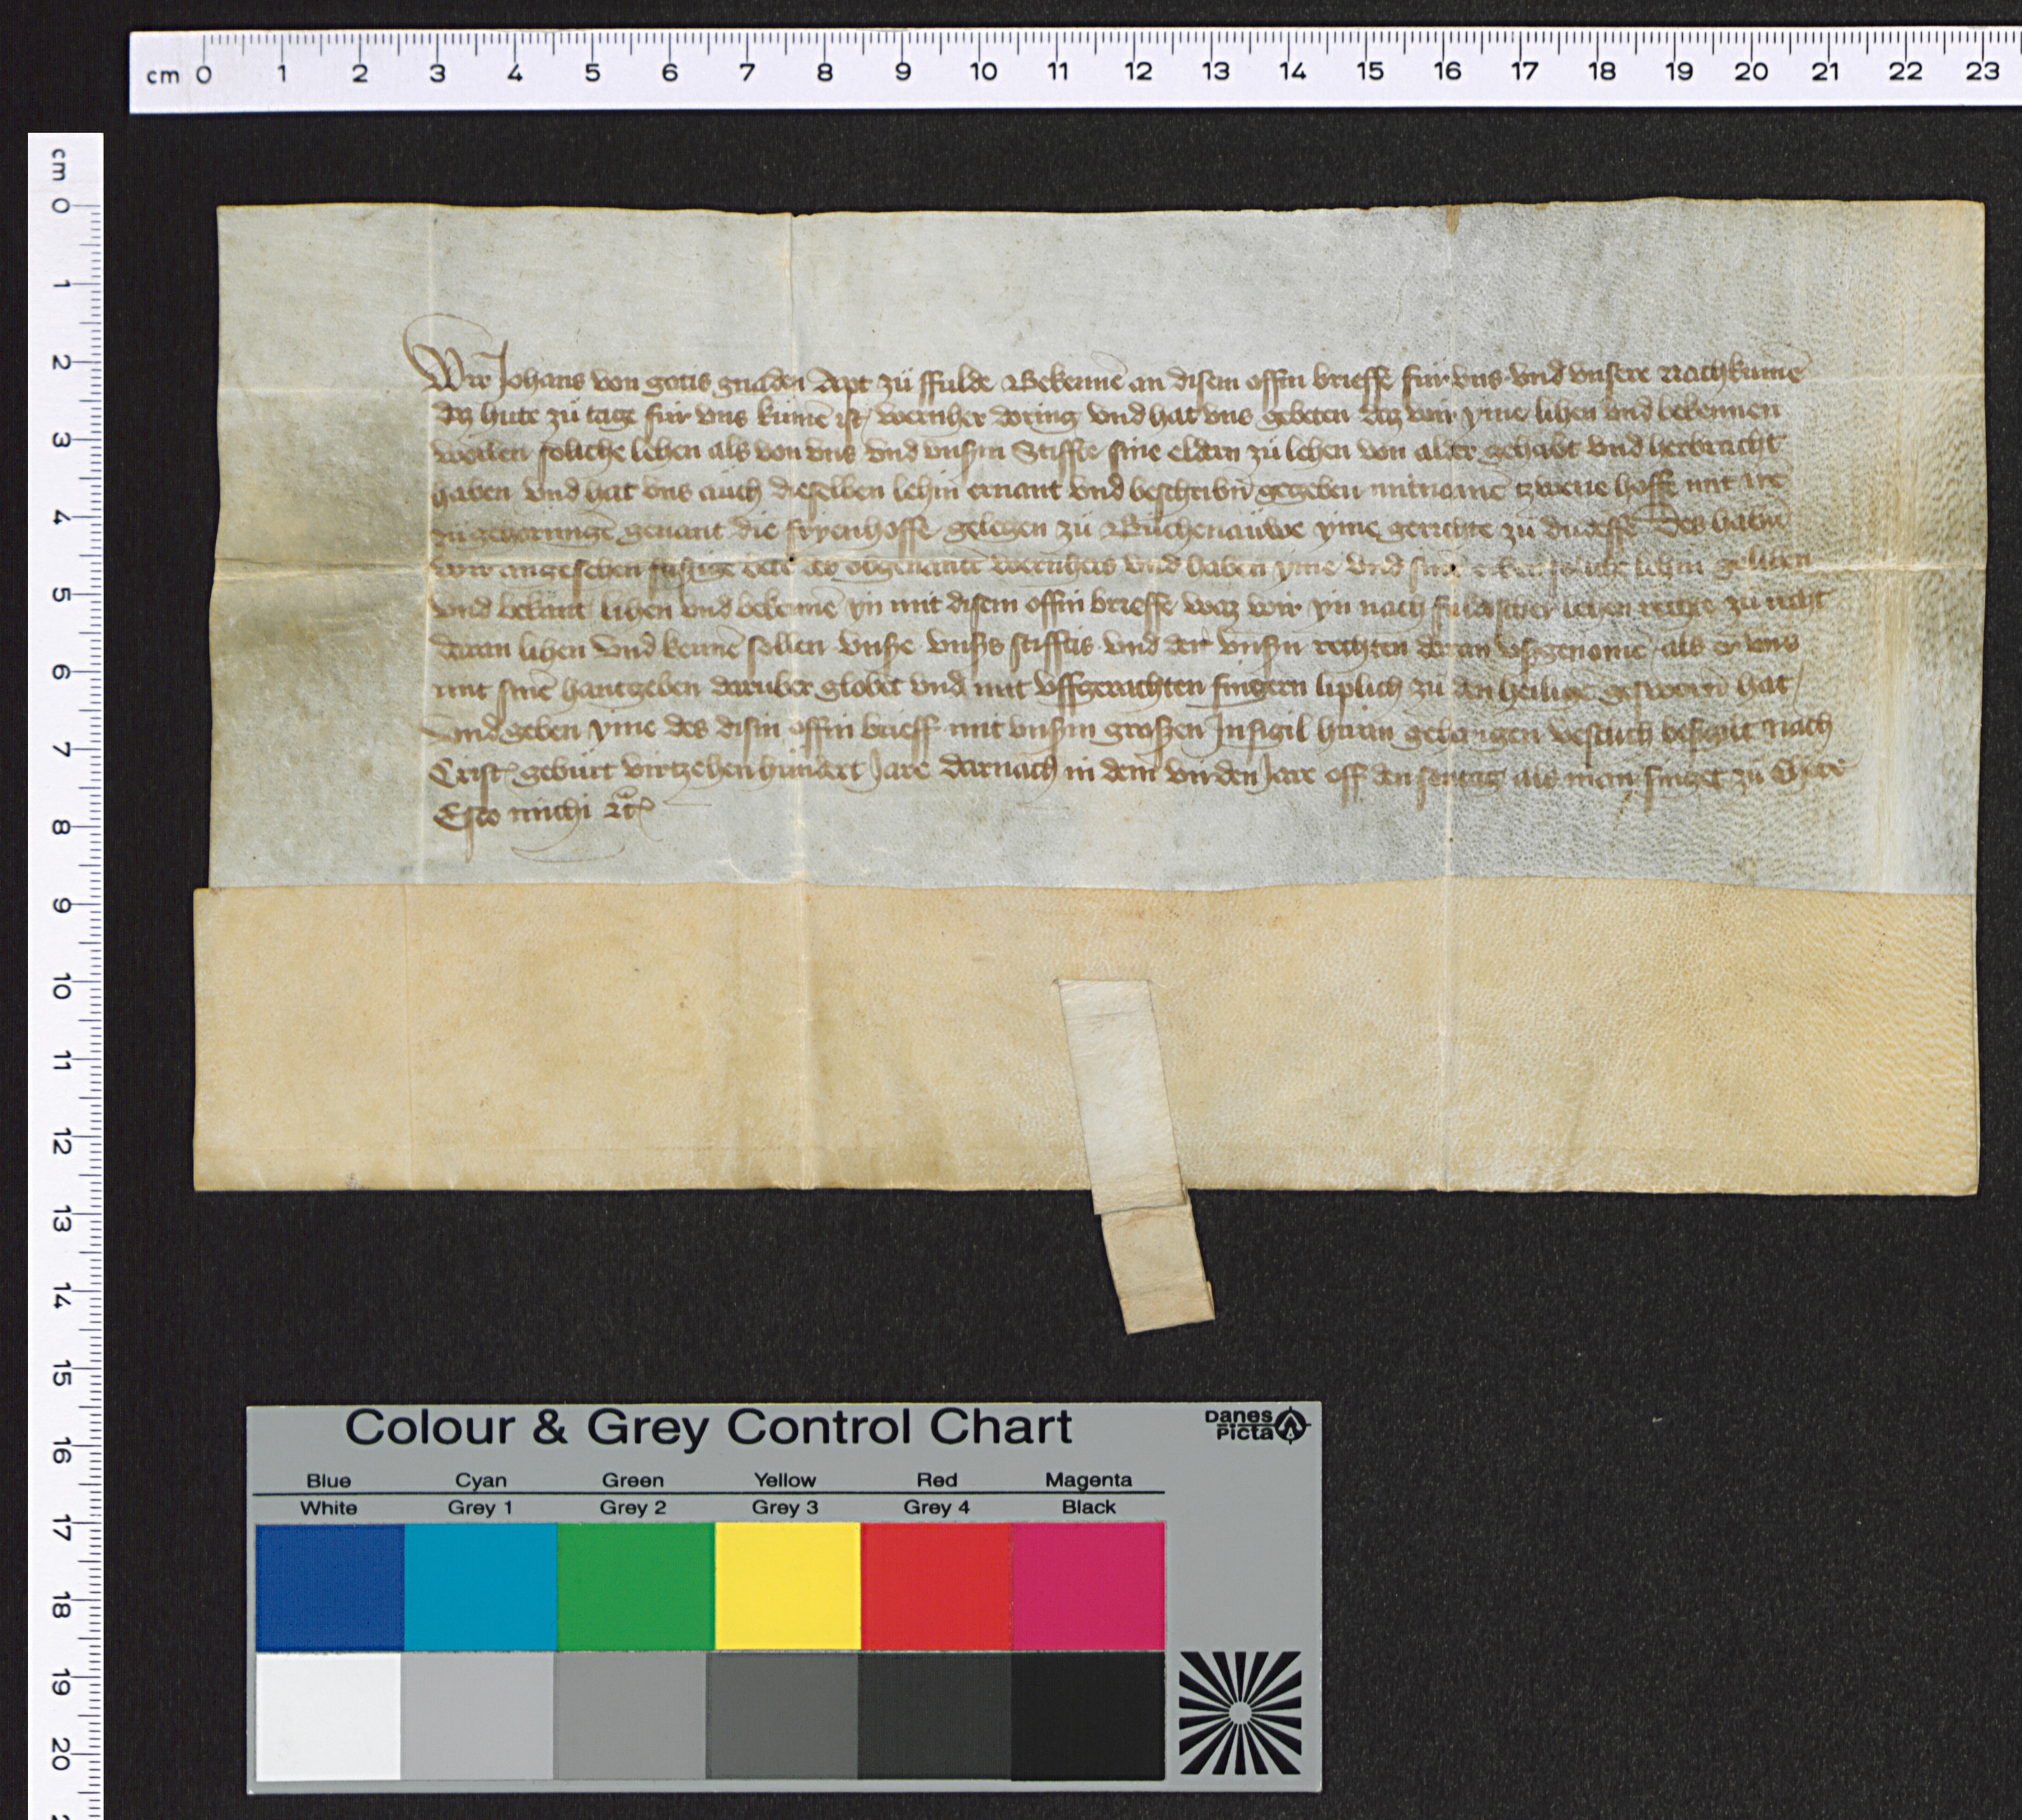 cm 0 1 2 3 4 5 6 7 8 9 10 11 12 13 14 15 16 17 18 19 20 21 22 23
cm 0 1 2 3 4 5 6 7 8 9 10 11 12 13 14 15 16 17 18 19 20
Wir Johans von gotis gnaden Apt zü ffulde Bekennē an disem offin brieffe für vns vnd vnsere nachkumē
dz hute zü tage für vns kümē ist / wernher döring vnd hat vns gebeten daz wir yme lihen vnd bekennen
wollen soliche lehen als von vns vnd vnsṃ Stiffte sine eldern zü lehen von alter gehabt vnd herbracht
haben vnd hat vns auch dieselben lehin ernant vnd beschribn̄ gegeben mitnamē tzwene hoffe mit irē
zugehorungē genant die fryenhoffe gelegen zü Buchenauwe yme gerichte zü
wir angesehen bete des obgenantē wernhers vnd haben yme vnd sinē soliche lehin gelihen
vnd bekant / lihen vnd bekennē yn mit disem offin brieffe waz wir yn nach fuldischer lehen rechte zu recht
daran lihen vnd kennē sollen vnsṣ stifftis vnd der vnsṇ rechten daran vßgenomē / als er vns
mit sinē hantgeben daruber globet vnd mit vffgerachten fingern liplich zü den heiligē gesworn̄ hat /
Vnd geben yme des disin offin brieff mit vnsṃ großen Jnsigil hiran gehangen vestlich besigilt Nach
Crist gebürt virtzehenhundert Jare darnach in dem virden Jare off den sontag als man singet zü Chore
Esto michi ꝛc
Colour & Grey Control Chart
Danes Picta
Blue Cyan Green Yellow Red Magenta
White Grey 1 Grey 2 Grey 3 Grey 4 Black